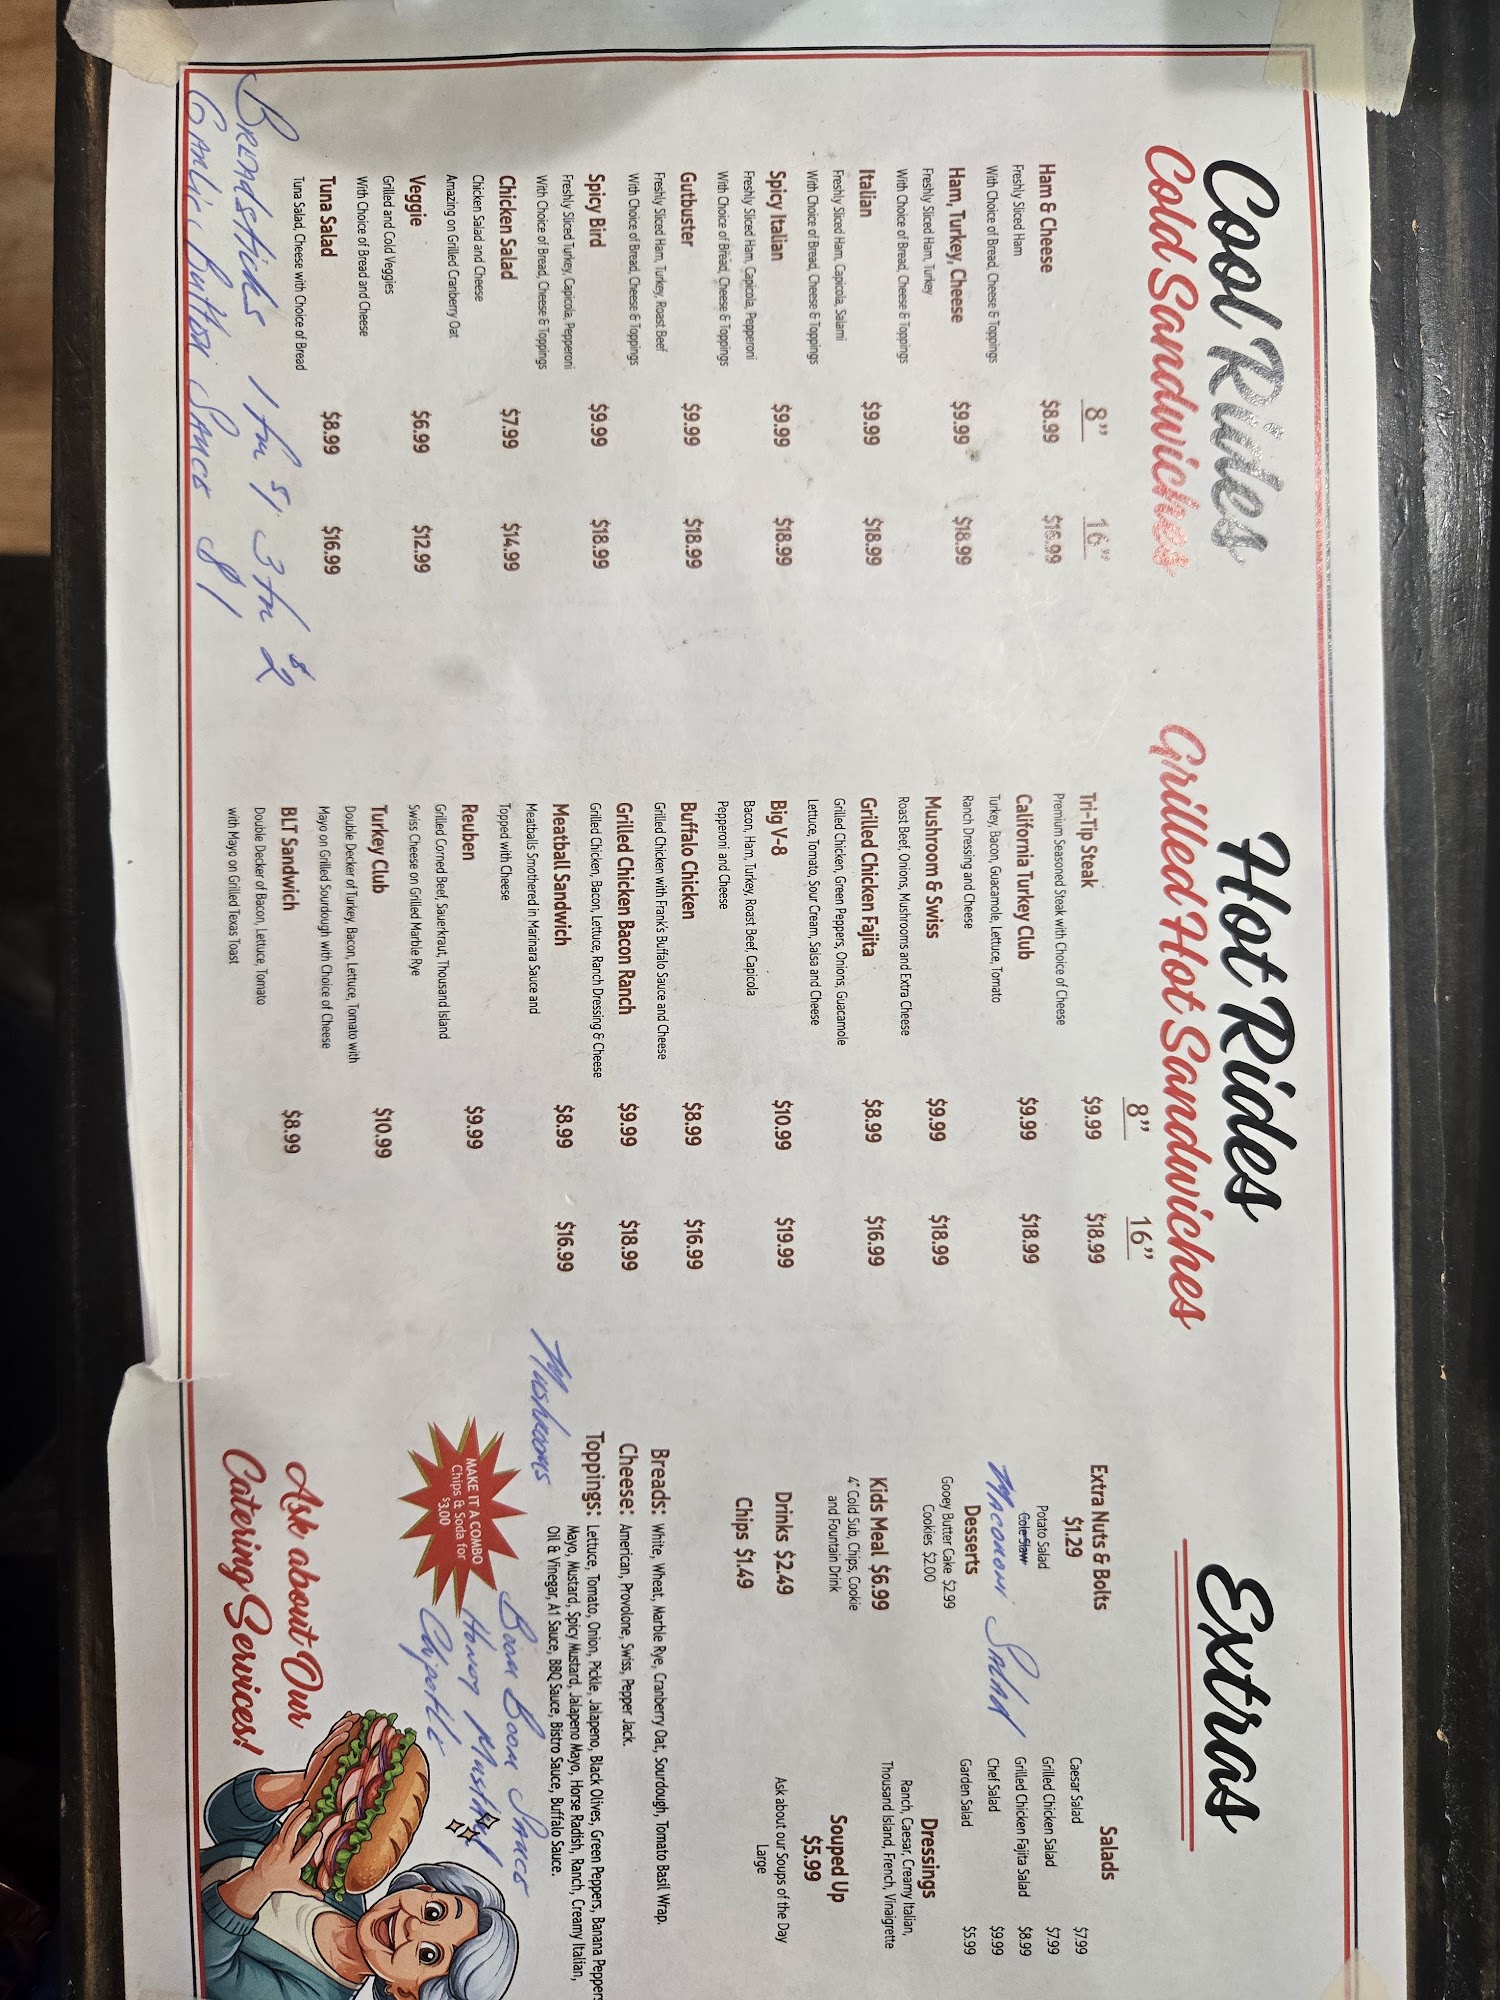 Cool Rides
Cold Sandwiches
8” 16”
Ham & Cheese $8.99 $16.99
Freshly Sliced Ham
With Choice of Bread, Cheese & Toppings
Ham, Turkey, Cheese $9.99 $18.99
Freshly Sliced Ham, Turkey
With Choice of Bread, Cheese & Toppings
Italian $9.99 $18.99
Freshly Sliced Ham, Capicola, Salami
With Choice of Bread, Cheese & Toppings
Spicy Italian $9.99 $18.99
Freshly Sliced Ham, Capicola, Pepperoni
With Choice of Bread, Cheese & Toppings
Gutbuster $9.99 $18.99
Freshly Sliced Ham, Turkey, Roast Beef
With Choice of Bread, Cheese & Toppings
Spicy Bird $9.99 $18.99
Freshly Sliced Turkey, Capicola, Pepperoni
With Choice of Bread, Cheese & Toppings
Chicken Salad $7.99 $14.99
Chicken Salad and Cheese
Amazing on Grilled Cranberry Oat
Veggie $6.99 $12.99
Grilled and Cold Veggies
With Choice of Bread and Cheese
Tuna Salad $8.99 $16.99
Tuna Salad, Cheese with Choice of Bread
Breadsticks 1 for $1 3 for $2
Garlic Butter Sauce $1
Hot Rides
Grilled Hot Sandwiches
8” 16”
Tri-Tip Steak $9.99 $18.99
Premium Seasoned Steak with Choice of Cheese
California Turkey Club $9.99 $18.99
Turkey, Bacon, Guacamole, Lettuce, Tomato
Ranch Dressing and Cheese
Mushroom & Swiss $9.99 $18.99
Roast Beef, Onions, Mushrooms and Extra Cheese
Grilled Chicken Fajita $8.99 $16.99
Grilled Chicken, Green Peppers, Onions, Guacamole
Lettuce, Tomato, Sour Cream, Salsa and Cheese
Big V-8 $10.99 $19.99
Bacon, Ham, Turkey, Roast Beef, Capicola
Pepperoni and Cheese
Buffalo Chicken $8.99 $16.99
Grilled Chicken with Frank's Buffalo Sauce and Cheese
Grilled Chicken Bacon Ranch $9.99 $18.99
Grilled Chicken, Bacon, Lettuce, Ranch Dressing & Cheese
Meatball Sandwich $8.99 $16.99
Meatballs Smothered in Marinara Sauce and
Topped with Cheese
Reuben $9.99
Grilled Corned Beef, Sauerkraut, Thousand Island
Swiss Cheese on Grilled Marble Rye
Turkey Club $10.99
Double Decker of Turkey, Bacon, Lettuce, Tomato with
Mayo on Grilled Sourdough with Choice of Cheese
BLT Sandwich $8.99
Double Decker of Bacon, Lettuce, Tomato
with Mayo on Grilled Texas Toast
Extras
Extra Nuts & Bolts
$1.29
Potato Salad
Cole Slaw
Macaroni Salad
Desserts
Gooey Butter Cake $2.99
Cookies $2.00
Kids Meal $6.99
4" Cold Sub, Chips, Cookie
and Fountain Drink
Drinks $2.49
Chips $1.49
Salads
Caesar Salad $7.99
Grilled Chicken Salad $7.99
Grilled Chicken Fajita Salad $8.99
Chef Salad $9.99
Garden Salad $5.99
Dressings
Ranch, Caesar, Creamy Italian,
Thousand Island, French, Vinaigrette
Souped Up
$5.99
Ask about our Soups of the Day
Large
Breads: White, Wheat, Marble Rye, Cranberry Oat, Sourdough, Tomato Basil Wrap.
Cheese: American, Provolone, Swiss, Pepper Jack.
Toppings: Lettuce, Tomato, Onion, Pickle, Jalapeno, Black Olives, Green Peppers, Banana Peppers
Mayo, Mustard, Spicy Mustard, Jalapeno Mayo, Horse Radish, Ranch, Creamy Italian,
Oil & Vinegar, A1 Sauce, BBQ Sauce, Bistro Sauce, Buffalo Sauce.
Mushrooms
Boom Boom Sauce
Honey Mustard
Chipotle
MAKE IT A COMBO
Chips & Soda for
$3.00
Ask about Our
Catering Services!